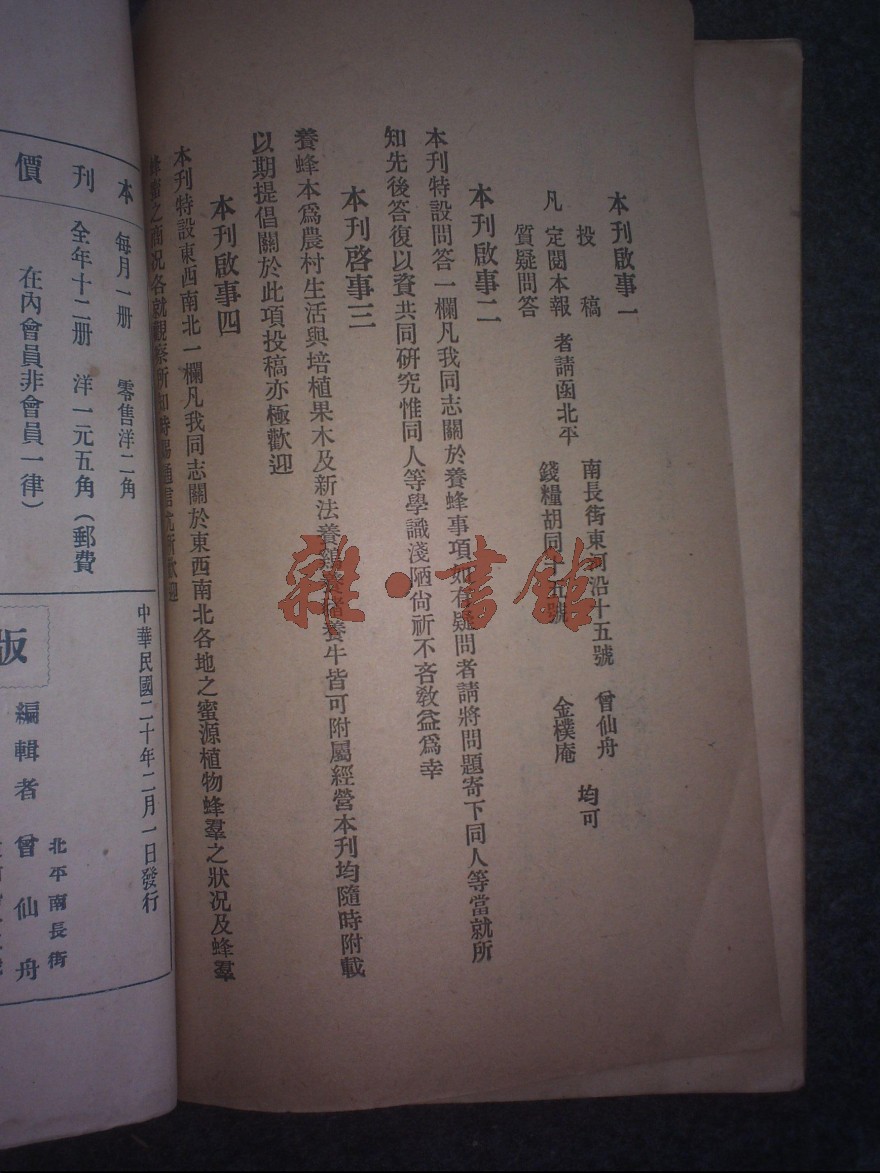 本刋啟事一
投稿
凡定閱本報者請函北平南長街東河沿十五號曾仙舟均可
質疑問答
錢糧胡同十五號金樸庵
本刋啟事二
本刋特設問答一欄凡我同志關於養蜂事項如有疑問者請將問題寄下同人等當就所
知先後答復以資共同研究惟同人等學識淺陋尙祈不吝敎益爲幸
本刋啓事三
養蜂本爲農村生活與培植果木及新法養鷄養猪養牛皆可附屬經營本刋均隨時附載
以期提倡關於此項投稿亦極歡迎
本刋啟事四
本刋特設東西南北一欄凡我同志關於東西南北各地之蜜源植物蜂羣之狀况及蜂羣
蜂蜜之商况各就觀察所知時賜通信尤所歡迎
本刋價
每月一册 零售洋二角
全年十二册 洋一元五角（郵費
在內會員非會員一律）
中華民國二十年二月一日發行
版
北平南長街
編輯者 曾仙舟
雜·書館